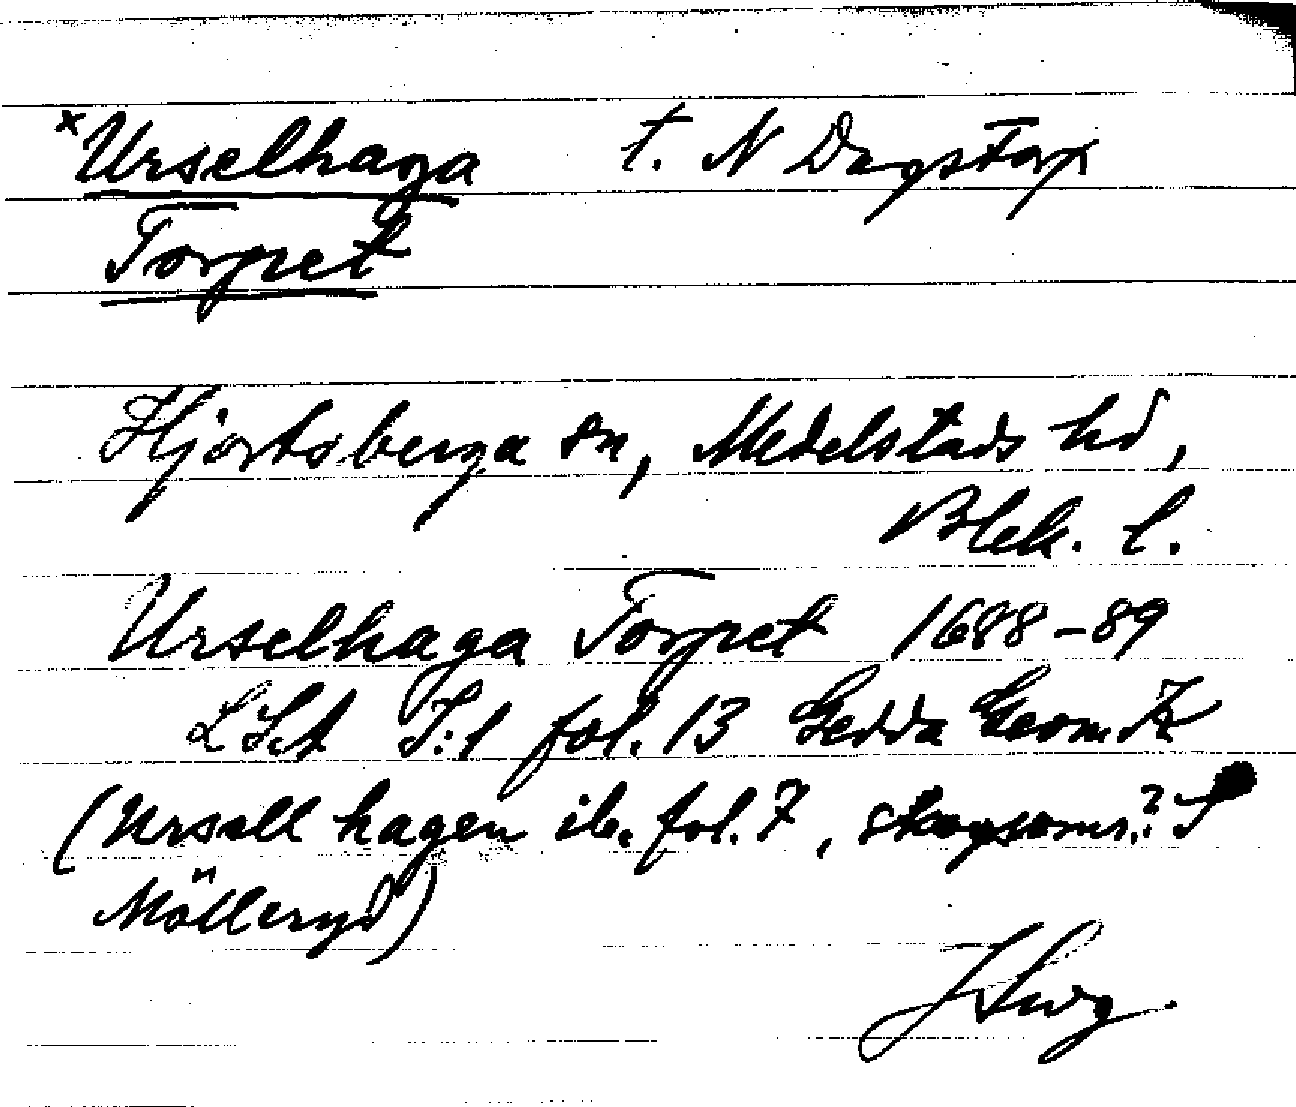 *Urselhaga t. N Dagstorp
Torpet
Hjortsberga sn, Medelstads hd,
Blek. l.
Urselhaga Torpet 1688-89
LSt I:1 fol. 13 Gedda Geom. K
(Ursell hagen ib. fol. 7, skogsomr.? S
Mölleryd)